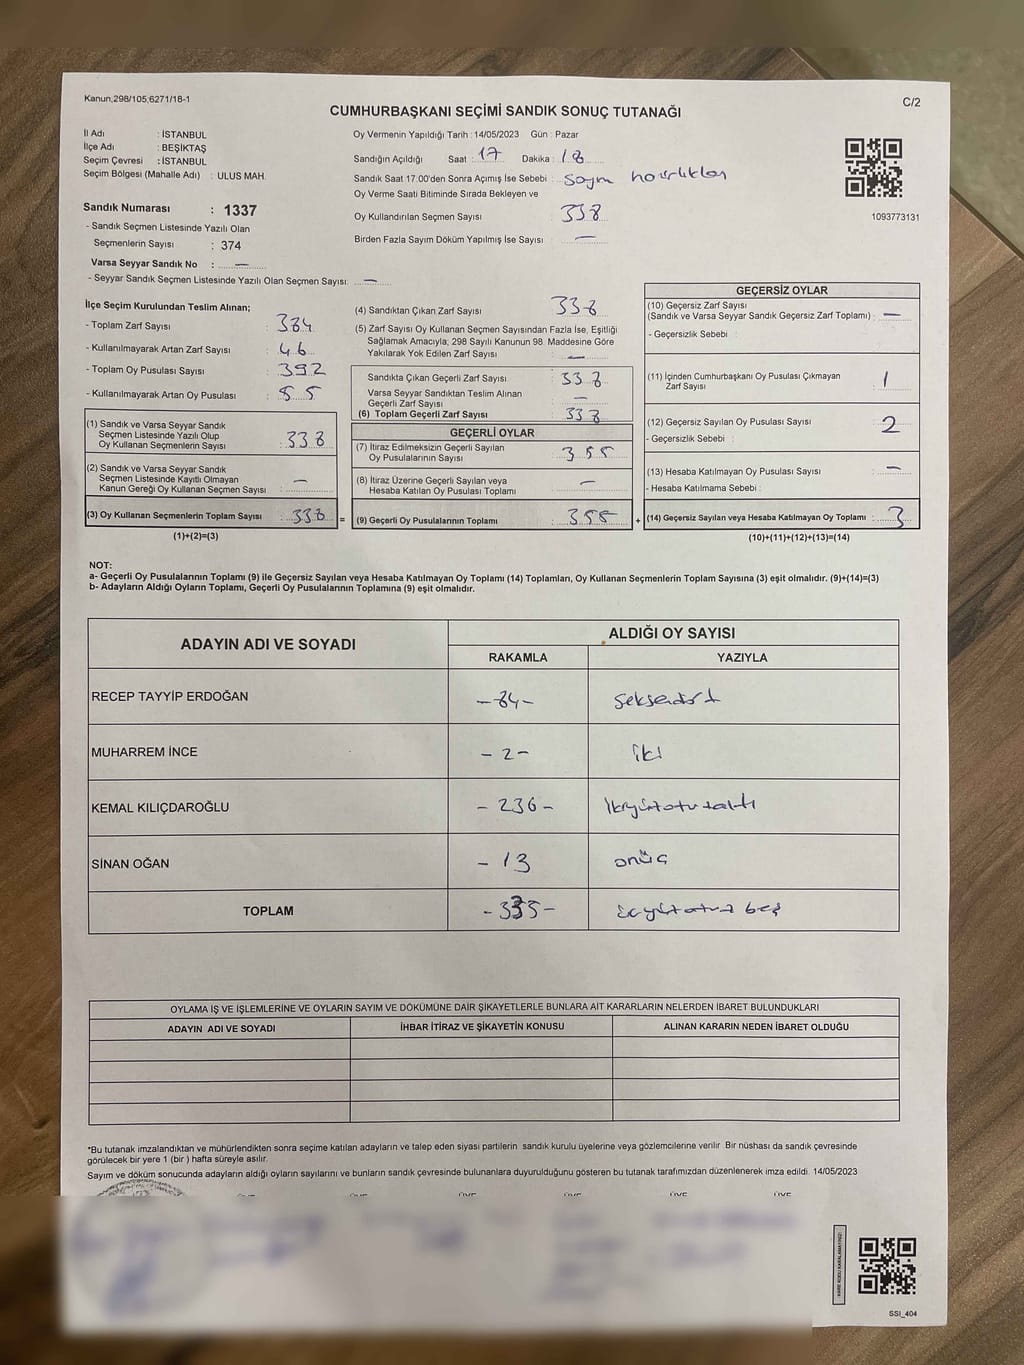 Kanun,298/105,6271/18-1
C/2
CUMHURBAŞKANI SEÇİMİ SANDIK SONUÇ TUTANAĞI
İl Adı : İSTANBUL
İlçe Adı : BEŞİKTAŞ
Seçim Çevresi : İSTANBUL
Seçim Bölgesi (Mahalle Adı) : ULUS MAH.
Sandık Numarası : 1337
- Sandık Seçmen Listesinde Yazılı Olan
Seçmenlerin Sayısı : 374
Varsa Seyyar Sandık No : —
- Seyyar Sandık Seçmen Listesinde Yazılı Olan Seçmen Sayısı: —
Oy Vermenin Yapıldığı Tarih : 14/05/2023 Gün : Pazar
Sandığın Açıldığı Saat : 17 Dakika : 18
Sandık Saat 17:00'den Sonra Açımış İse Sebebi : Sayım hazırlıkları
Oy Verme Saati Bitiminde Sırada Bekleyen ve
Oy Kullandırılan Seçmen Sayısı : 338
Birden Fazla Sayım Döküm Yapılmış İse Sayısı : —
1093773131
İlçe Seçim Kurulundan Teslim Alınan;
- Toplam Zarf Sayısı : 384
- Kullanılmayarak Artan Zarf Sayısı : 46
- Toplam Oy Pusulası Sayısı : 392
- Kullanılmayarak Artan Oy Pusulası : 55
(1) Sandık ve Varsa Seyyar Sandık
Seçmen Listesinde Yazılı Olup
Oy Kullanan Seçmenlerin Sayısı : 338
(2) Sandık ve Varsa Seyyar Sandık
Seçmen Listesinde Kayıtlı Olmayan
Kanun Gereği Oy Kullanan Seçmen Sayısı : —
(3) Oy Kullanan Seçmenlerin Toplam Sayısı : 338 =
(1)+(2)=(3)
(4) Sandıktan Çıkan Zarf Sayısı : 338
(5) Zarf Sayısı Oy Kullanan Seçmen Sayısından Fazla İse, Eşitliği
Sağlamak Amacıyla; 298 Sayılı Kanunun 98. Maddesine Göre
Yakılarak Yok Edilen Zarf Sayısı : —
Sandıkta Çıkan Geçerli Zarf Sayısı : 338
Varsa Seyyar Sandıktan Teslim Alınan
Geçerli Zarf Sayısı : —
(6) Toplam Geçerli Zarf Sayısı : 338
GEÇERLİ OYLAR
(7) İtiraz Edilmeksizin Geçerli Sayılan
Oy Pusulalarının Sayısı : 355
(8) İtiraz Üzerine Geçerli Sayılan veya
Hesaba Katılan Oy Pusulası Toplamı : —
(9) Geçerli Oy Pusulalarının Toplamı : 355 +
GEÇERSİZ OYLAR
(10) Geçersiz Zarf Sayısı
(Sandık ve Varsa Seyyar Sandık Geçersiz Zarf Toplamı) : —
- Geçersizlik Sebebi :
(11) İçinden Cumhurbaşkanı Oy Pusulası Çıkmayan
Zarf Sayısı : 1
(12) Geçersiz Sayılan Oy Pusulası Sayısı : 2
- Geçersizlik Sebebi :
(13) Hesaba Katılmayan Oy Pusulası Sayısı : —
- Hesaba Katılmama Sebebi :
(14) Geçersiz Sayılan veya Hesaba Katılmayan Oy Toplamı : 3
(10)+(11)+(12)+(13)=(14)
NOT:
a- Geçerli Oy Pusulalarının Toplamı (9) ile Geçersiz Sayılan veya Hesaba Katılmayan Oy Toplamı (14) Toplamları, Oy Kullanan Seçmenlerin Toplam Sayısına (3) eşit olmalıdır. (9)+(14)=(3)
b- Adayların Aldığı Oyların Toplamı, Geçerli Oy Pusulalarının Toplamına (9) eşit olmalıdır.
ADAYIN ADI VE SOYADI
ALDIĞI OY SAYISI
RAKAMLA YAZIYLA
RECEP TAYYİP ERDOĞAN -84- Seksendört
MUHARREM İNCE -2- iki
KEMAL KILIÇDAROĞLU -236- İkiyüzotuzaltı
SİNAN OĞAN -13 onüç
TOPLAM -335- üçyüzotuz beş
OYLAMA İŞ VE İŞLEMLERİNE VE OYLARIN SAYIM VE DÖKÜMÜNE DAİR ŞİKAYETLERLE BUNLARA AİT KARARLARIN NELERDEN İBARET BULUNDUKLARI
ADAYIN ADI VE SOYADI İHBAR İTİRAZ VE ŞİKAYETİN KONUSU ALINAN KARARIN NEDEN İBARET OLDUĞU
*Bu tutanak imzalandıktan ve mühürlendikten sonra seçime katılan adayların ve talep eden siyasi partilerin sandık kurulu üyelerine veya gözlemcilerine verilir. Bir nüshası da sandık çevresinde
görülecek bir yere 1 (bir ) hafta süreyle asılır.
Sayım ve döküm sonucunda adayların aldığı oyların sayılarını ve bunların sandık çevresinde bulunanlara duyurulduğunu gösteren bu tutanak tarafımızdan düzenlenerek imza edildi. 14/05/2023
SSI_404